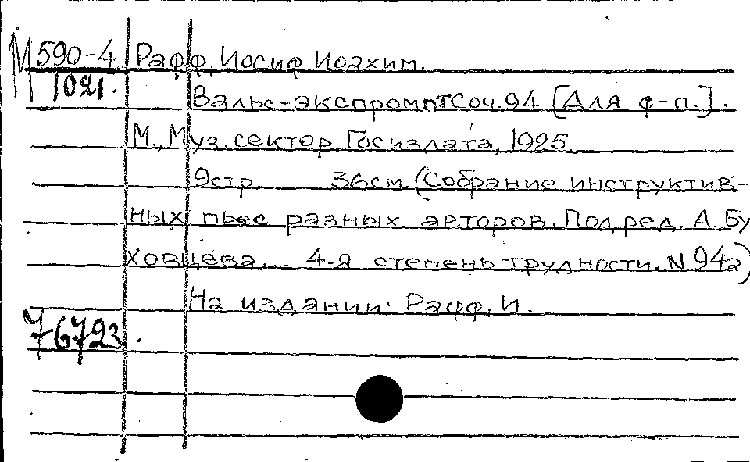 М590-4 Рафф, Иосиф Иоахим.
1021. Вальс-экспромт Соч. 94 [Для ф-п.].
М., Муз. сектор Госиздата, 1925.
9 стр. 36 см. (Собрание инструктив-
ных пьес разных авторов. Под ред. А. Бу
ховцева. 4-я степень трудности. N 94а)
На издании: Рафф, И.
76723.